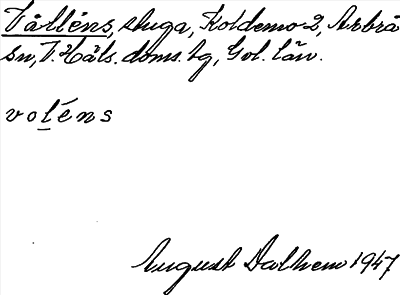 Vålléns, stuga, Koldemo 2, Arbrå
sn, V. Häls. doms. tg, Gvl. län.
voléns
August Dalhem 1947